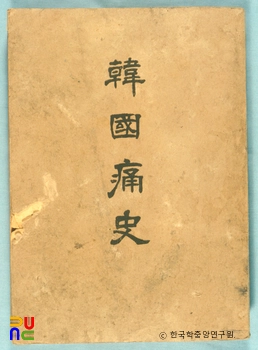 韓國痛史
ⓒ 한국학중앙연구원